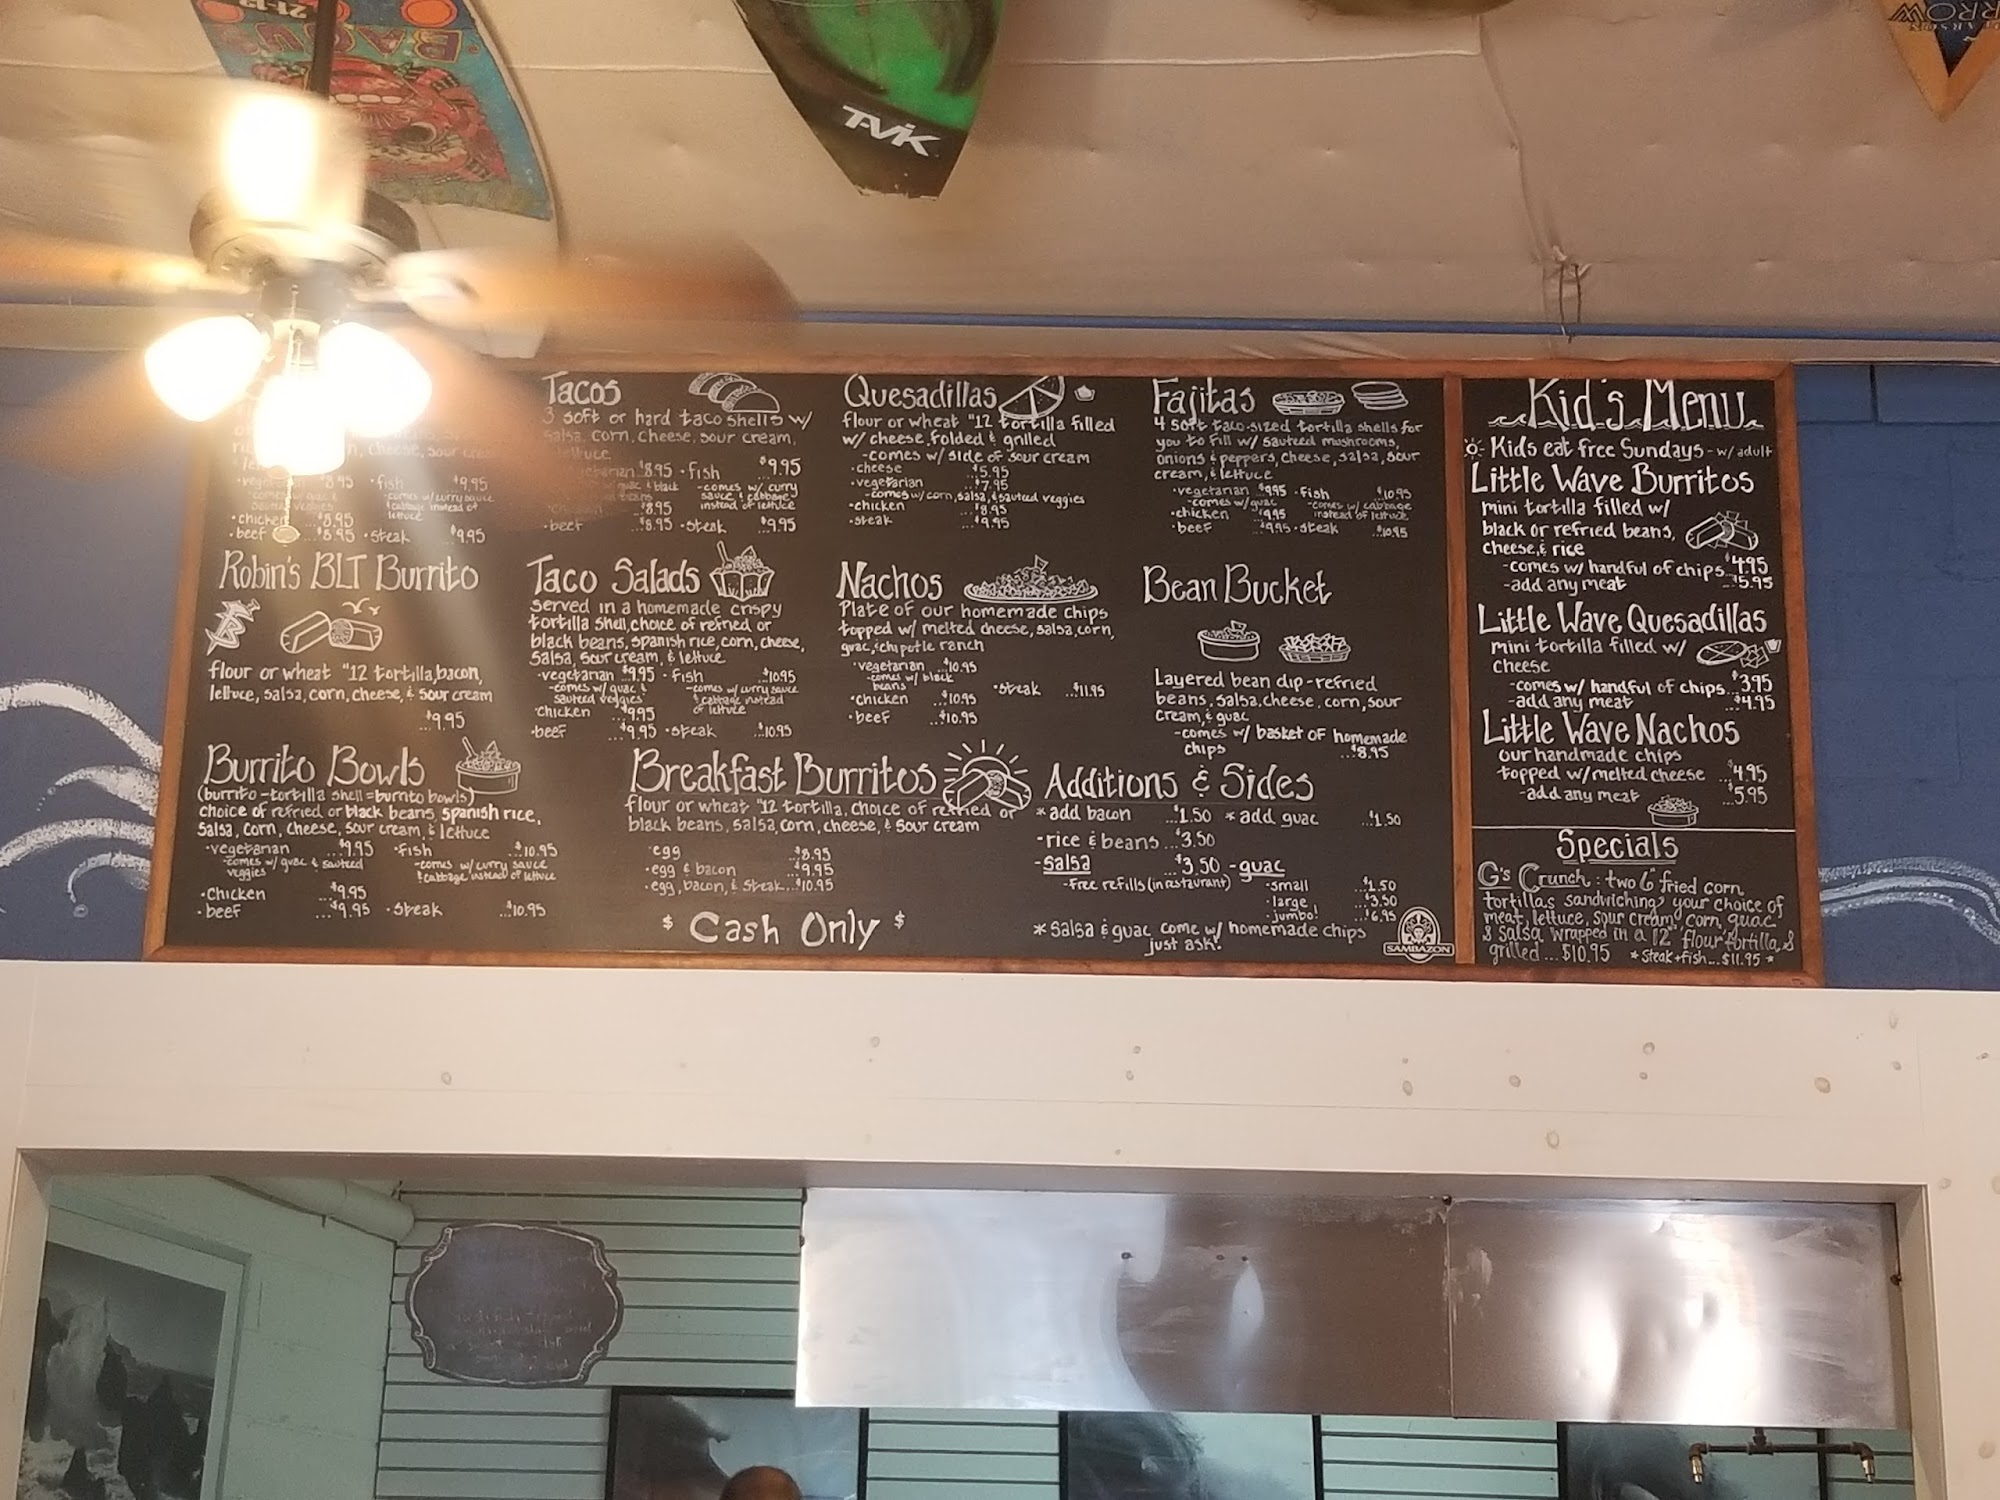 BAQU
21-12
TAVIK
Tacos
3 soft or hard taco shells w/
salsa, corn, cheese, sour cream,
lettuce
vegetarian $8.95 • fish $9.95
-comes w/ curry
sauce & cabbage
instead of lettuce
...$8.95
• beef ...$8.95 • steak ...$9.95
Quesadillas
flour or wheat "12 tortilla filled
w/ cheese, folded & grilled
-comes w/ side of sour cream
• cheese ...$5.95
• vegetarian ...$7.95
-comes w/ corn, salsa, & sauteed veggies
• chicken ...$8.95
• steak ...$9.95
Fajitas
4 soft taco-sized tortilla shells for
you to fill w/ sauteed mushrooms,
onions & peppers, cheese, salsa, sour
cream, & lettuce
• vegetarian $9.95 • fish $10.95
-comes w/ guac -comes w/ cabbage
instead of lettuce
• chicken ...$9.95
• beef ...$9.95 • steak ...$10.95
cheese, sour cream
• vegetarian $8.95 • fish $9.95
-comes w/ guac & -comes w/ curry sauce
sauteed veggies & cabbage instead of
lettuce
• chicken ...$8.95
• beef ...$8.95 • steak ...$9.95
Robin's BLT Burrito
flour or wheat "12 tortilla, bacon,
lettuce, salsa, corn, cheese, & sour cream
...$9.95
Taco Salads
served in a homemade crispy
tortilla shell, choice of refried or
black beans, spanish rice, corn, cheese,
salsa, sour cream, & lettuce
• vegetarian $9.95 • fish ...$10.95
-comes w/ guac & -comes w/ curry sauce
sauteed veggies & cabbage instead
of lettuce
• chicken ...$9.95
• beef ...$9.95 • steak ...$10.95
Nachos
Plate of our homemade chips
topped w/ melted cheese, salsa, corn,
guac, & chipotle ranch
• vegetarian ...$10.95
-comes w/ black
beans
• steak ...$11.95
• chicken ...$10.95
• beef ...$10.95
Bean Bucket
Layered bean dip - refried
beans, salsa, cheese, corn, sour
cream, & guac
-comes w/ basket of homemade
chips ...$8.95
Burrito Bowls
(burrito - tortilla shell = burrito bowls)
choice of refried or black beans, spanish rice,
salsa, corn, cheese, sour cream, & lettuce
• vegetarian ...$9.95 • fish ...$10.95
-comes w/ guac & sauteed -comes w/ curry sauce
veggies & cabbage instead of lettuce
• chicken ...$9.95
• beef ...$9.95 • steak ...$10.95
Breakfast Burritos
flour or wheat "12 tortilla, choice of refried or
black beans, salsa, corn, cheese, & sour cream
• egg ...$8.95
• egg & bacon ...$9.95
• egg, bacon, & steak...$10.95
$ Cash Only $
Additions & Sides
* add bacon ...$1.50 * add guac ...$1.50
- rice & beans ...$3.50
- salsa ...$3.50 - guac
- free refills (in restaurant) • small ...$1.50
• large ...$3.50
• jumbo! ...$6.95
* Salsa & guac come w/ homemade chips
just ask!
SAMBAZON
Kid's Menu
Kids eat free Sundays - w/ adult
Little Wave Burritos
mini tortilla filled w/
black or refried beans,
cheese, & rice
-comes w/ handful of chips $4.95
-add any meat ...$5.95
Little Wave Quesadillas
mini tortilla filled w/
cheese
-comes w/ handful of chips...$3.95
-add any meat ...$4.95
Little Wave Nachos
our handmade chips
topped w/ melted cheese ...$4.95
-add any meat ...$5.95
Specials
G's Crunch: two 6" fried corn
tortillas sandwiching your choice of
meat, lettuce, sour cream, corn, guac
& salsa wrapped in a 12" flour tortilla, &
grilled ... $10.95 * steak + fish... $11.95 *